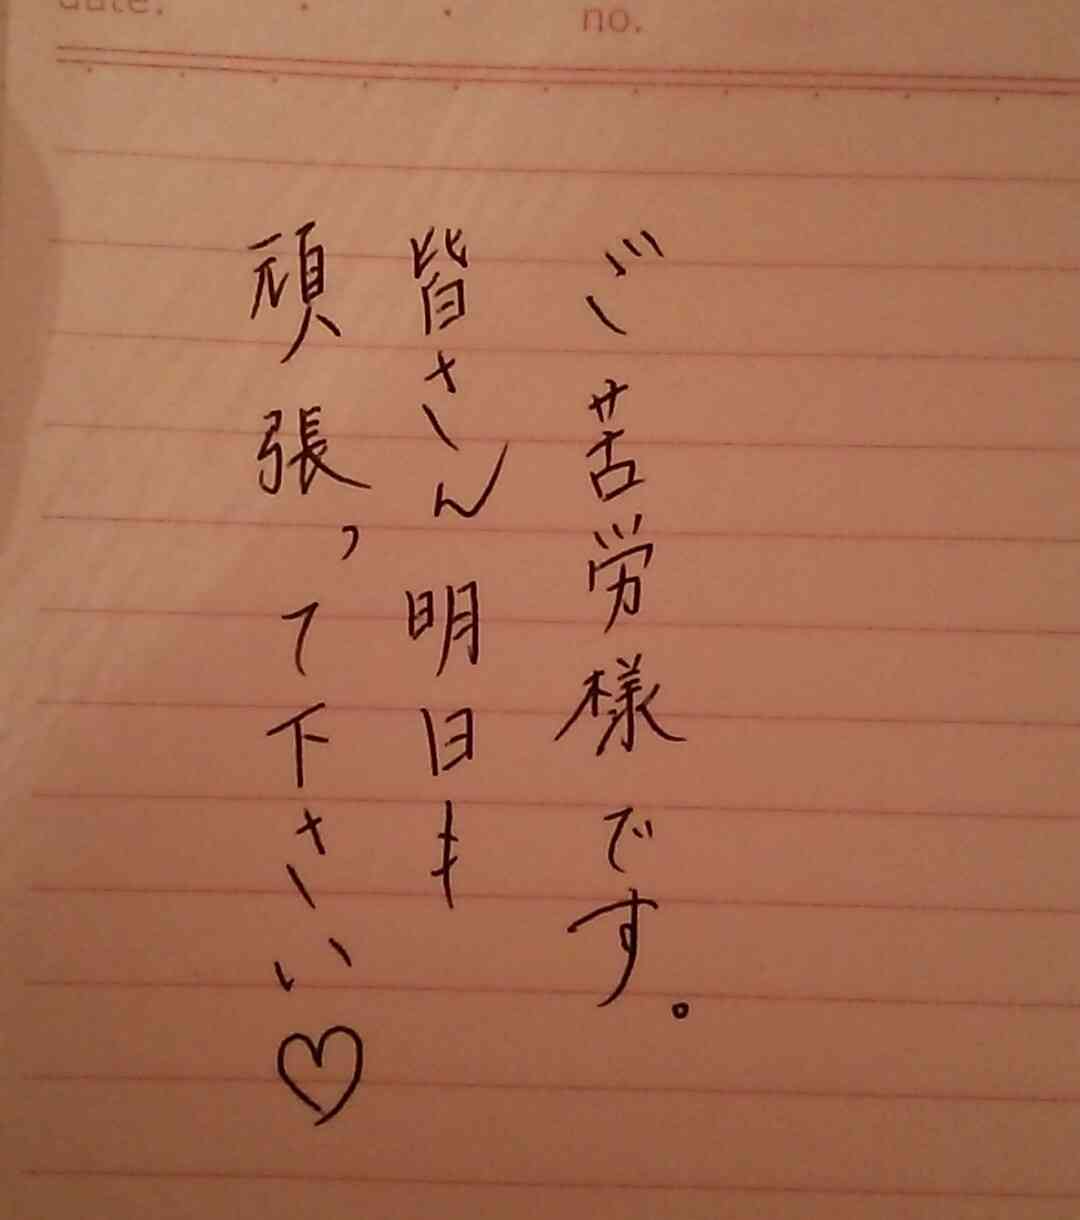 date.
no.
ご苦労様です。
皆さん明日も
頑張って下さい♡